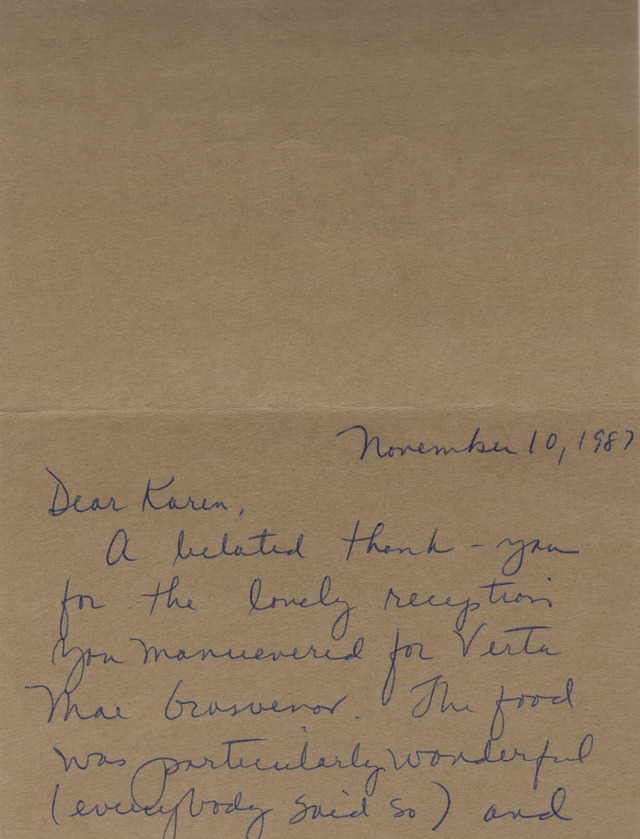 November 10, 1987
Dear Karen,
A belated thank-you
for the lovely reception
you manuevered for Verta
Mae Grosvenor. The food
was particularly wonderful
(everybody said so) and